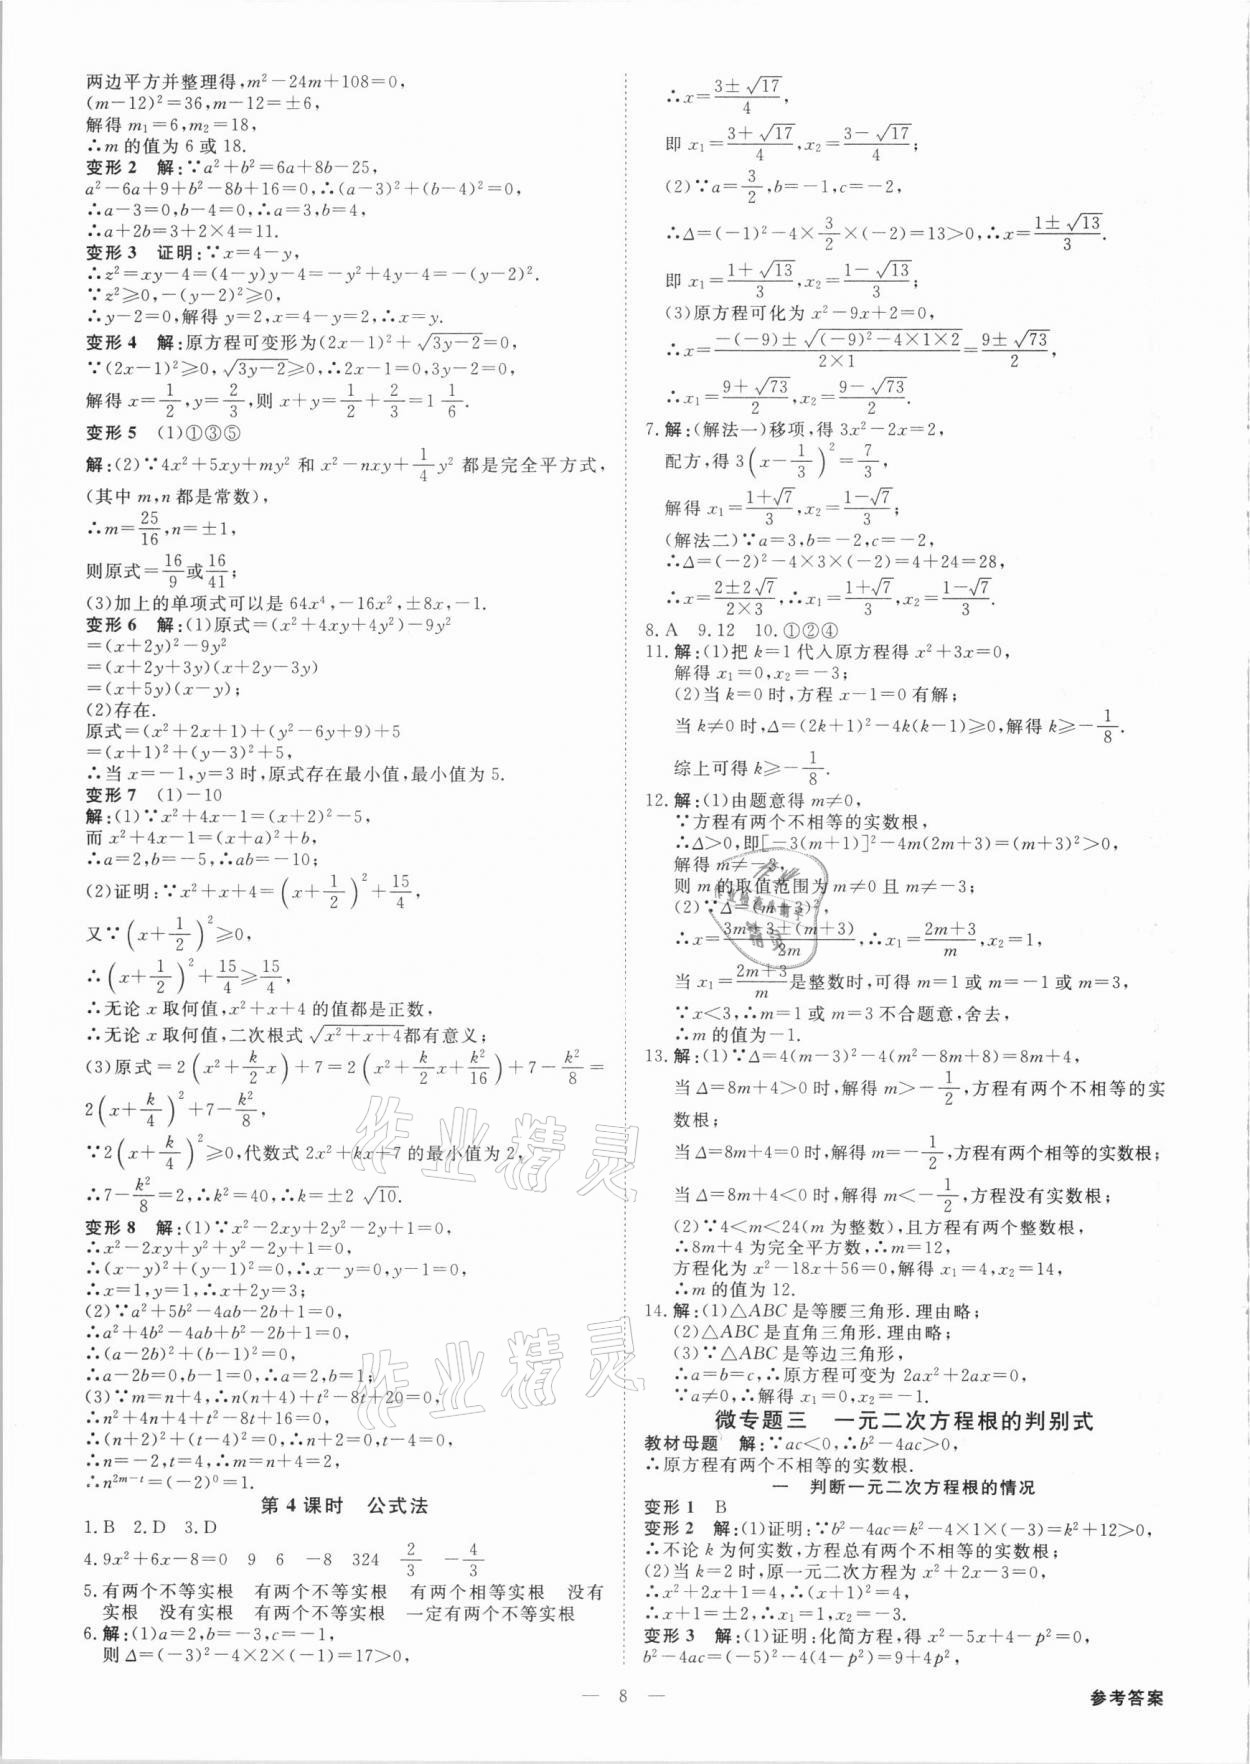 两边平方并整理得,m²-24m+108=0,
(m-12)²=36,m-12=±6,
解得 m₁=6,m₂=18,
∴m 的值为 6 或 18.
变形 2 解:∵a²+b²=6a+8b-25,
a²-6a+9+b²-8b+16=0,∴(a-3)²+(b-4)²=0,
∴a-3=0,b-4=0,∴a=3,b=4,
∴a+2b=3+2×4=11.
变形 3 证明:∵x=4-y,
∴z²=xy-4=(4-y)y-4=-y²+4y-4=-(y-2)².
∵z²≥0,-(y-2)²≥0,
∴y-2=0,解得 y=2,x=4-y=2,∴x=y.
变形 4 解:原方程可变形为(2x-1)²+√(3y-2)=0,
∵(2x-1)²≥0,√(3y-2)≥0,∴2x-1=0,3y-2=0,
解得 x=1/2,y=2/3,则 x+y=1/2+2/3=1 1/6.
变形 5 (1)①③⑤
解:(2)∵4x²+5xy+my² 和 x²-nxy+1/4y² 都是完全平方式,
(其中 m,n都是常数),
∴m=25/16,n=±1,
则原式=16/9或16/41;
(3)加上的单项式可以是 64x⁴,-16x²,±8x,-1.
变形 6 解:(1)原式=(x²+4xy+4y²)-9y²
=(x+2y)²-9y²
=(x+2y+3y)(x+2y-3y)
=(x+5y)(x-y);
(2)存在.
原式=(x²+2x+1)+(y²-6y+9)+5
=(x+1)²+(y-3)²+5,
∴当 x=-1,y=3 时,原式存在最小值,最小值为 5.
变形 7 (1)-10
解:(1)∵x²+4x-1=(x+2)²-5,
而 x²+4x-1=(x+a)²+b,
∴a=2,b=-5,∴ab=-10;
(2)证明:∵x²+x+4=(x+1/2)²+15/4,
又∵(x+1/2)²≥0,
∴(x+1/2)²+15/4≥15/4,
∴无论 x 取何值,x²+x+4 的值都是正数,
∴无论 x 取何值,二次根式√(x²+x+4)都有意义;
(3)原式=2(x²+k/2x)+7=2(x²+k/2x+k²/16)+7-k²/8=
2(x+k/4)²+7-k²/8,
∵2(x+k/4)²≥0,代数式 2x²+kx+7 的最小值为 2,
∴7-k²/8=2,∴k²=40,∴k=±2√10.
变形 8 解:(1)∵x²-2xy+2y²-2y+1=0,
∴x²-2xy+y²+y²-2y+1=0,
∴(x-y)²+(y-1)²=0,∴x-y=0,y-1=0,
∴x=1,y=1,∴x+2y=3;
(2)∵a²+5b²-4ab-2b+1=0,
∴a²+4b²-4ab+b²-2b+1=0,
∴(a-2b)²+(b-1)²=0,
∴a-2b=0,b-1=0,∴a=2,b=1;
(3)∵m=n+4,∴n(n+4)+t²-8t+20=0,
∴n²+4n+4+t²-8t+16=0,
∴(n+2)²+(t-4)²=0,
∴n=-2,t=4,∴m=n+4=2,
∴n²ᵐ⁻ᵗ=(-2)⁰=1.
第 4 课时 公式法
1.B 2.D 3.D
4.9x²+6x-8=0 9 6 -8 324 2/3 -4/3
5.有两个不等实根 有两个不等实根 有两个相等实根 没有
实根 没有实根 有两个不等实根 一定有两个不等实根
6.解:(1)a=2,b=-3,c=-1,
则 Δ=(-3)²-4×2×(-1)=17>0,
∴x=(3±√17)/4,
即 x₁=(3+√17)/4,x₂=(3-√17)/4;
(2)∵a=3/2,b=-1,c=-2,
∴Δ=(-1)²-4×3/2×(-2)=13>0,∴x=(1±√13)/3.
即 x₁=(1+√13)/3,x₂=(1-√13)/3;
(3)原方程可化为 x²-9x+2=0,
∴x=(-(-9)±√((-9)²-4×1×2))/(2×1)=(9±√73)/2,
∴x₁=(9+√73)/2,x₂=(9-√73)/2.
7.解:(解法一)移项,得 3x²-2x=2,
配方,得 3(x-1/3)²=7/3,
解得 x₁=(1+√7)/3,x₂=(1-√7)/3;
(解法二)∵a=3,b=-2,c=-2,
∴Δ=(-2)²-4×3×(-2)=4+24=28,
∴x=(2±2√7)/(2×3),∴x₁=(1+√7)/3,x₂=(1-√7)/3.
8.A 9.12 10.①②④
11.解:(1)把 k=1 代入原方程得 x²+3x=0,
解得 x₁=0,x₂=-3;
(2)当 k=0 时,方程 x-1=0 有解;
当 k≠0 时,Δ=(2k+1)²-4k(k-1)≥0,解得 k≥-1/8.
综上可得 k≥-1/8.
12.解:(1)由题意得 m≠0,
∵方程有两个不相等的实数根,
∴Δ>0,即[-3(m+1)]²-4m(2m+3)=(m+3)²>0,
解得 m≠-3,
则 m的取值范围为 m≠0 且 m≠-3;
(2)∵Δ=(m+3)²,
∴x=(3m+3±(m+3))/2m,∴x₁=(2m+3)/m,x₂=1,
当 x₁=(2m+3)/m是整数时,可得 m=1 或 m=-1 或 m=3,
∵x<3,∴m=1 或 m=3 不合题意,舍去,
∴m 的值为-1.
13.解:(1)∵Δ=4(m-3)²-4(m²-8m+8)=8m+4,
当 Δ=8m+4>0 时,解得 m>-1/2,方程有两个不相等的实
数根;
当 Δ=8m+4=0 时,解得 m=-1/2,方程有两个相等的实数根;
当 Δ=8m+4<0 时,解得 m<-1/2,方程没有实数根;
(2)∵4<m<24(m 为整数),且方程有两个整数根,
∴8m+4 为完全平方数,∴m=12,
方程化为 x²-18x+56=0,解得 x₁=4,x₂=14,
∴m 的值为 12.
14.解:(1)△ABC 是等腰三角形.理由略;
(2)△ABC 是直角三角形.理由略;
(3)∵△ABC 是等边三角形,
∴a=b=c,∴原方程可变为 2ax²+2ax=0,
∵a≠0,∴解得 x₁=0,x₂=-1.
微专题三 一元二次方程根的判别式
教材母题 解:∵ac<0,∴b²-4ac>0,
∴原方程有两个不相等的实数根.
一 判断一元二次方程根的情况
变形 1 B
变形 2 解:(1)证明:∵b²-4ac=k²-4×1×(-3)=k²+12>0,
∴不论 k 为何实数,方程总有两个不相等的实数根;
(2)当 k=2 时,原一元二次方程为 x²+2x-3=0,
∴x²+2x+1=4,∴(x+1)²=4,
∴x+1=±2,∴x₁=1,x₂=-3.
变形 3 解:(1)证明:化简方程,得 x²-5x+4-p²=0,
b²-4ac=(-5)²-4(4-p²)=9+4p²,
— 8 —
参考答案
作业精灵
作业精灵